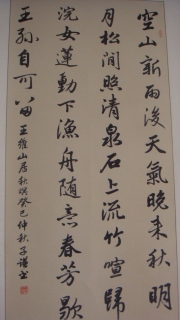 空山新雨後天氣晚來秋明
月松間照清泉石上流竹喧歸
浣女蓮動下漁舟隨意春芳歇
王孙自可留
王維山居秋暝癸巳仲秋子谨书